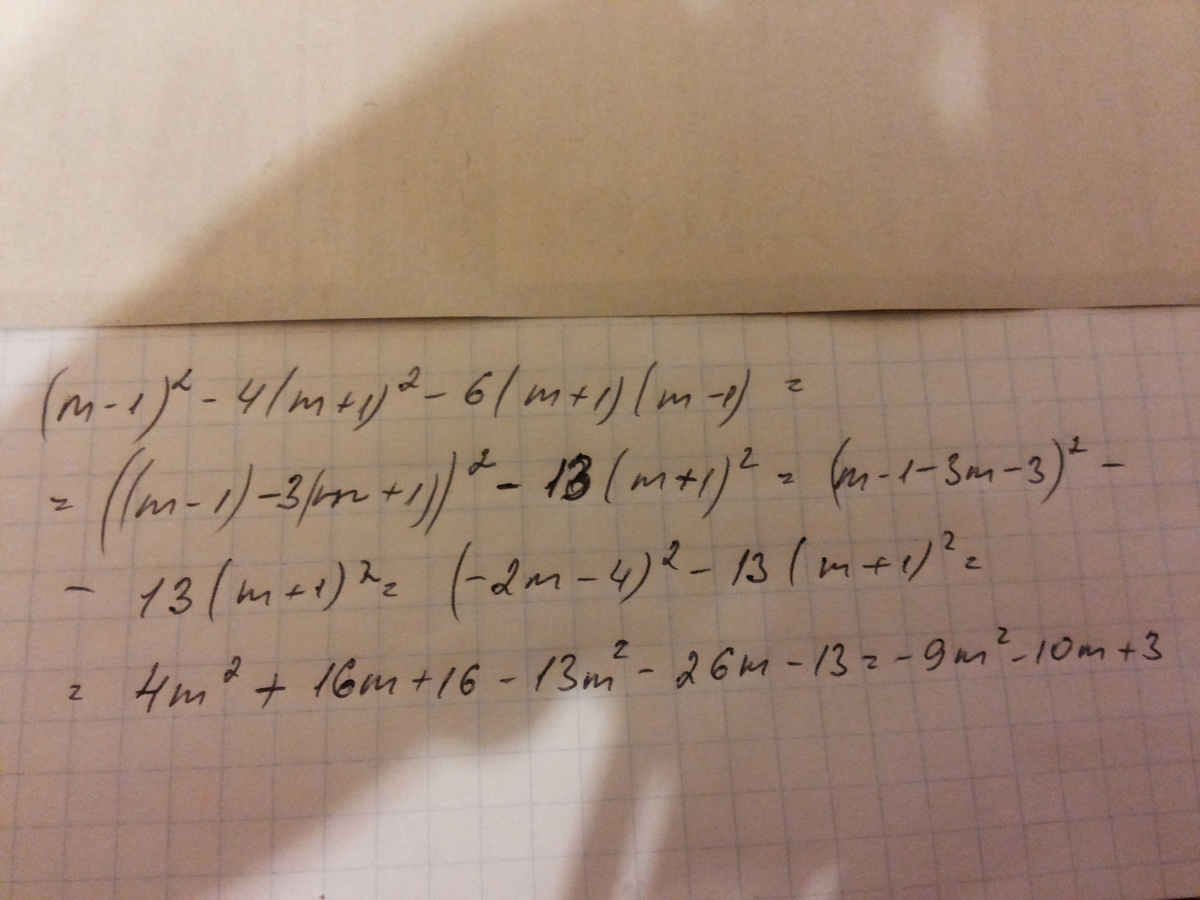 (m-1)² - 4(m+1)² - 6(m+1)(m-1) =
= ((m-1)-3(m+1))² - 13(m+1)² = (m-1-3m-3)² -
- 13(m+1)² = (-2m-4)² - 13(m+1)² =
= 4m² + 16m + 16 - 13m² - 26m - 13 = -9m² - 10m + 3